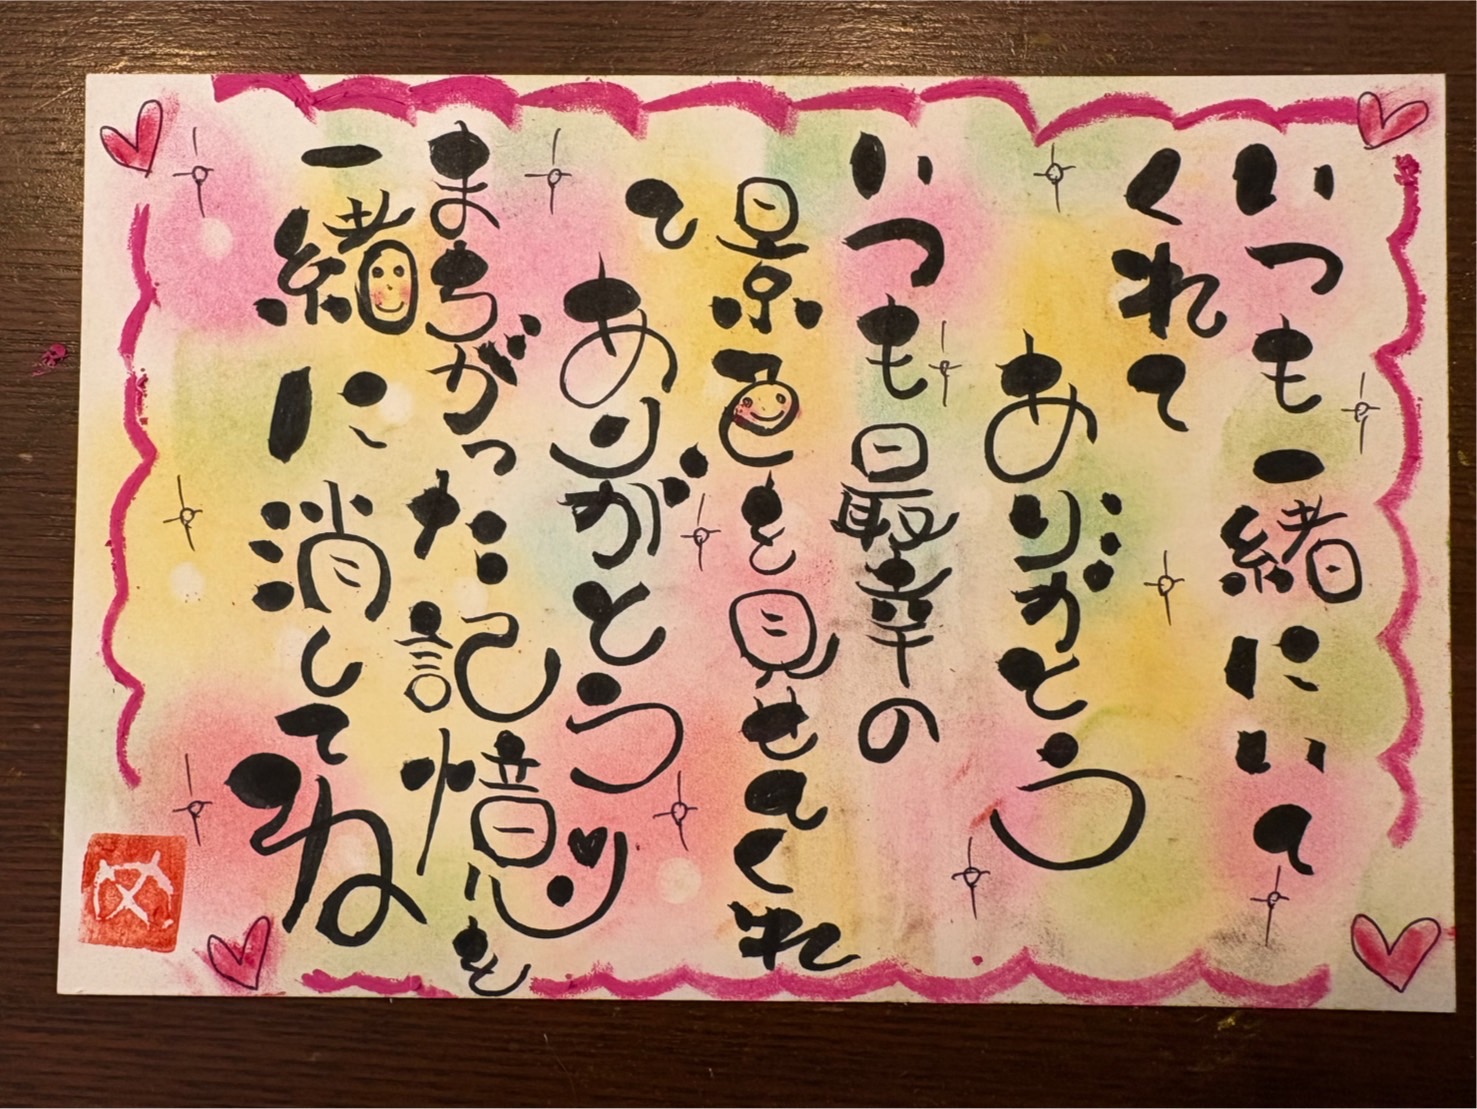 いつも一緒にいて
くれて
ありがとう
いつも最幸の
景色を見せてくれ
て
ありがとう
まちがった記憶も
一緒に消してね